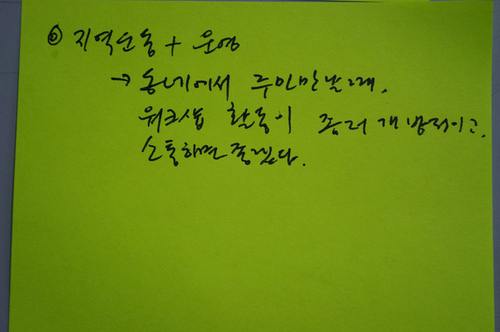 ◎ 지역소통 + 운영
→ 동네에서 주민만날때,
워크샵 활동이 좀더 개방적이고,
소통하면 좋겠다.